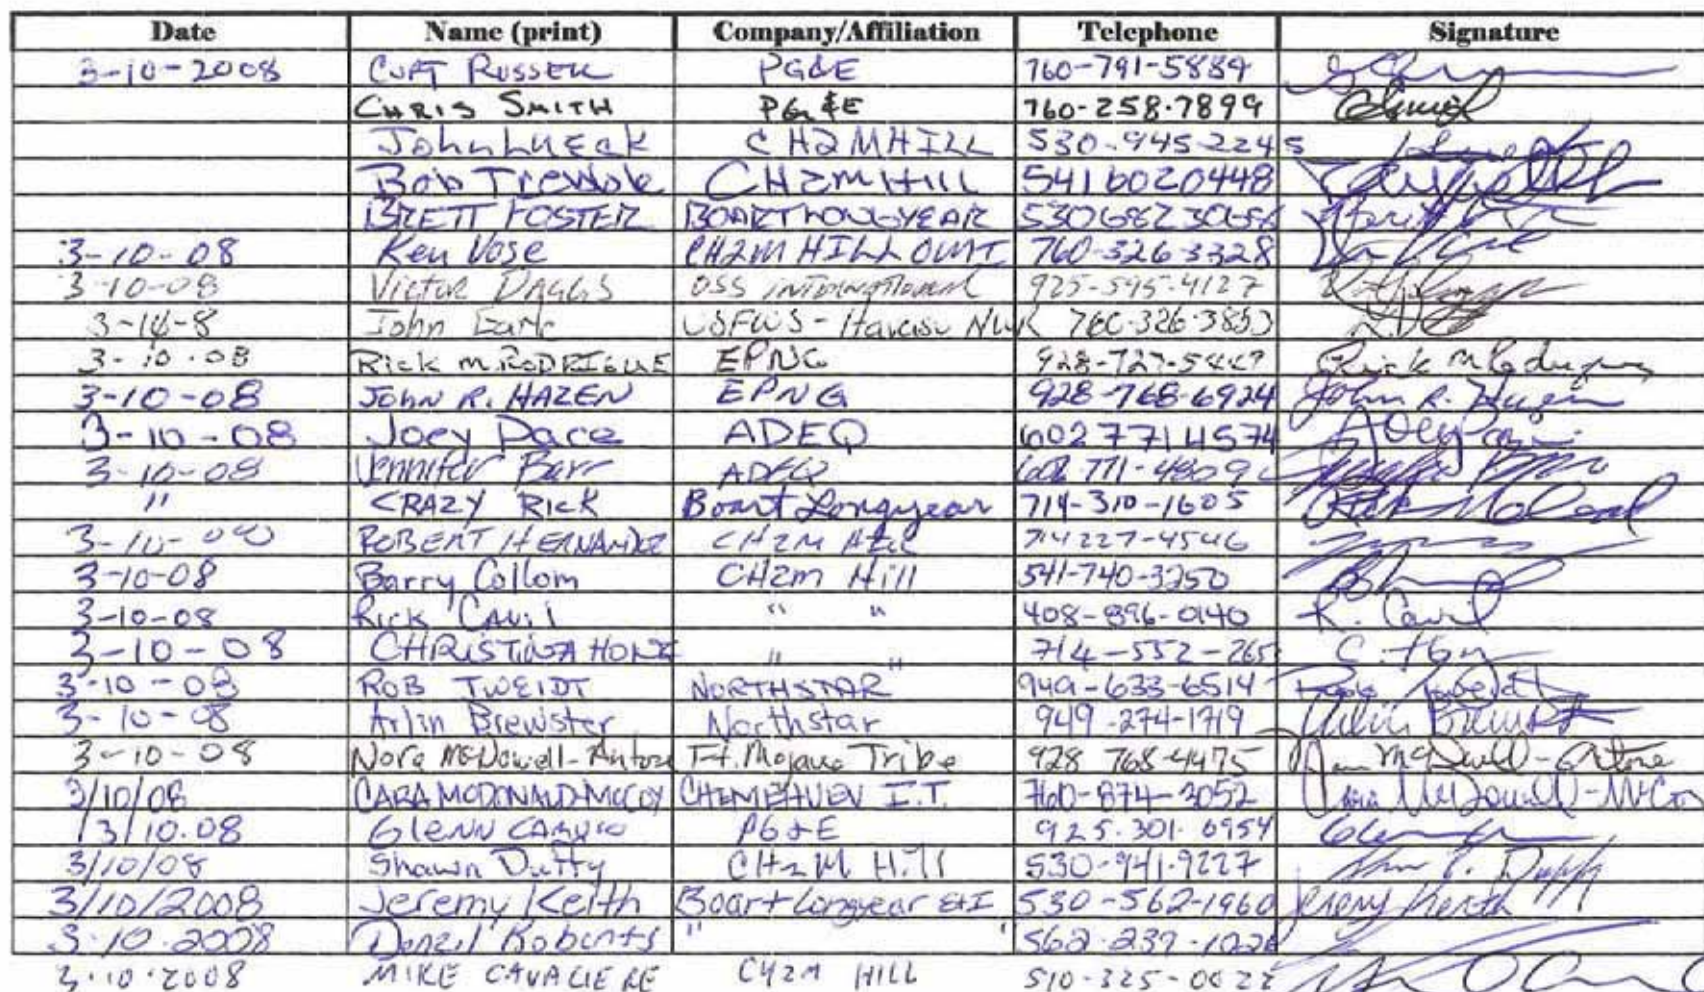 Date Name (print) Company/Affiliation Telephone Signature
3-10-2008 CURT RUSSELL PG&E 760-791-5884
CHRIS SMITH PG&E 760-258-7899
John LUECK CH2MHILL 530-945-2245
Bob CH2MHill 5416020448
BRETT FOSTER BOART LONGYEAR
3-10-08 Ken Vose CH2M HILL OMI 760-326-3328
3-10-08 Victor DAGGS OSS INTERNATIONAL 925-595-4127
John Earle USFWS - Havasu NWR 760-326-3853
3-10-08 Rick M. RODRIGUE EPNG
3-10-08 JOHN R. HAZEN EPNG 928-768-6924 John R. Hazen
3-10-08 Joey Pace ADEQ 602 771 4574 Joey Pace
3-10-08 Jennifer Barr ADEQ
" CRAZY RICK Boart Longyear 714-310-1605
3-10-08 ROBERT HERNANDEZ CH2M Hill 714 227-4546
3-10-08 Barry Collom CH2m Hill 541-740-3250
3-10-08 Rick CAVil " " 408-896-0140 R. Cavil
3-10-08 CHRISTINA HONG " " 714-552-265
3-10-08 ROB TWEIDT NORTHSTAR 949-633-6514
3-10-08 Arlin Brewster Northstar 949-274-1719 Arlin Brewster
3-10-08 Nora McDowell-Antone Ft. Mojave Tribe 928 768-4475 Nora McDowell-Antone
3/10/08 CARA MCDONALD-MCCOY CHEMEHUEVI I.T. 760-874-3052
3/10.08 Glenn CARUSO PG&E 925.301.6954
3/10/08 Shawn Duffy CH2M Hill 530-941-9227
3/10/2008 Jeremy Keith Boart Longyear E&I 530-562-1960 Jeremy Keith
3-10-2008 Denzil Roberts " "
3-10-2008 MIKE CAVALIERE CH2M HILL